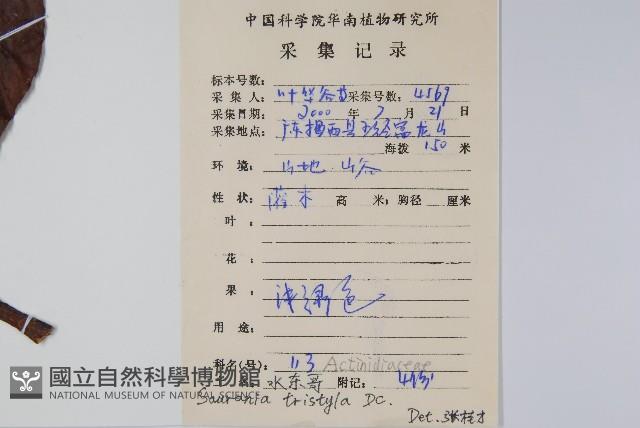 中国科学院华南植物研究所
采集记录
标本号数:
采集人: 叶华谷 采集号数: 4569
采集日期: 2000 年 7 月 21 日
采集地点: 广东揭西县 龙山
海拨 150 米
环境: 山地 山谷
性状: 灌木 高 米; 胸径 厘米
叶:
花:
果: 淡绿色
用途:
科名(号): 113 Actinidiaceae
水东哥 附记:
Saurauia tristyla DC.
Det. 张桂才
國立自然科學博物館
NATIONAL MUSEUM OF NATURAL SCIENCE